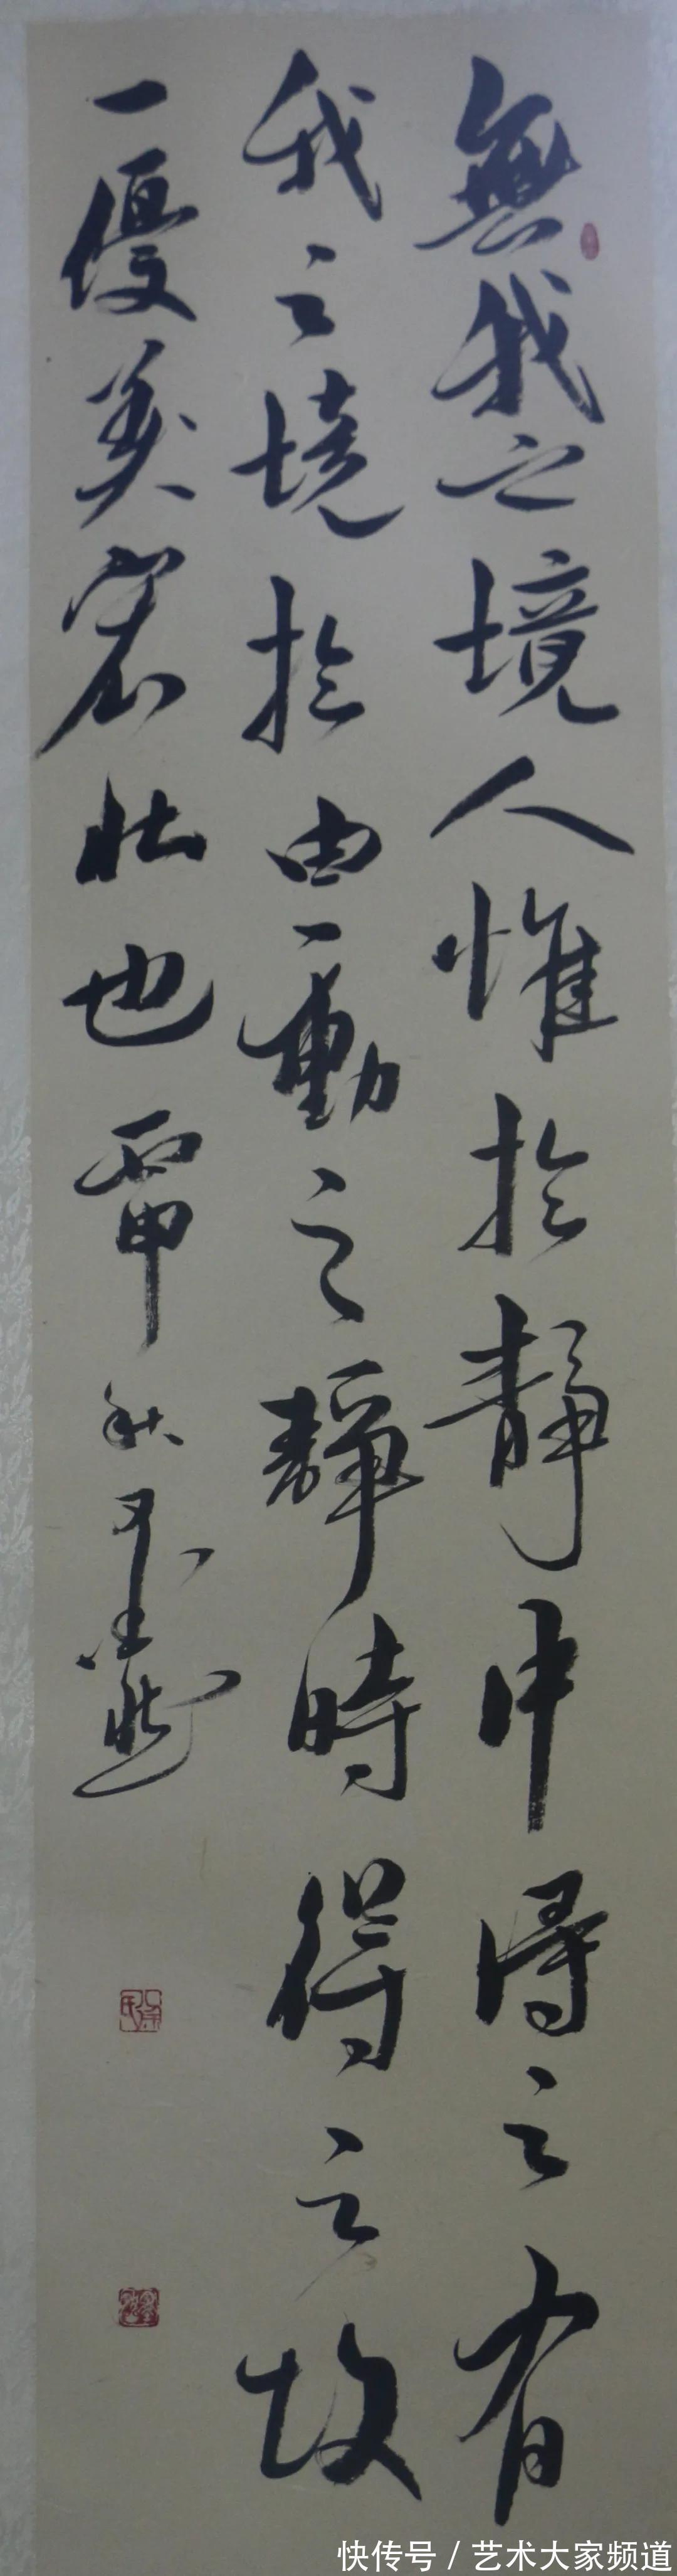 無我之境人惟於靜中得之有
我之境於由動之靜時得之故
一優美一宏壯也丙申秋
快传号 / 艺术大家频道